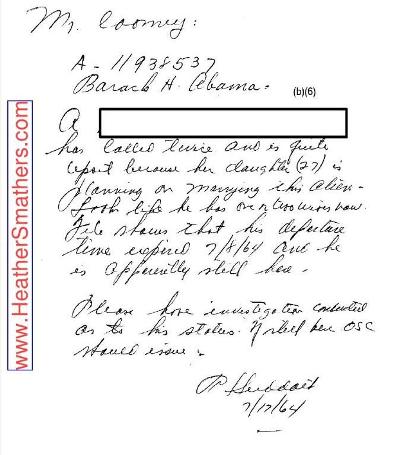 Mr. Coomey:
A-11938537
Barack H. Obama.
(b)(6)
A
has called twice and is quite
upset because her daughter (27) is
planning on marrying this alien-
Looks like he has one or two wives now.
File shows that his departure
time expired 7/8/64 and he
is apparently still here.
Please have investigation conducted
as to his status. If still here OSC
should issue.
7/17/64
www.HeatherSmathers.com